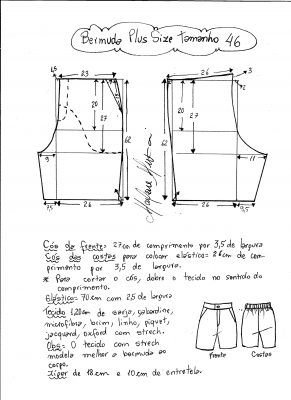 Bermuda Plus Size Tamanho 46
1,5
23
2
20
27
62
9
7,5
26
26
3
2
20
27
62
62
11
26
9,5
Marlene Mukai
Cós da frente: 27cm de comprimento por 3,5 de largura
Cós das costas para colocar elástico= 28cm de com-
primento por 3,5 de largura.
* Para cortar o cós, dobre o tecido no sentido do
comprimento.
Elástico= 70cm com 2,5 de largura
Tecido 1,20cm de sarja, gabardine,
microfibra, brim, linho, piquet,
jacquard, oxford com strech.
Obs= O tecido com strech
modela melhor a bermuda ao
corpo.
Zíper de 18cm e 10cm de entretela.
Frente
Costas